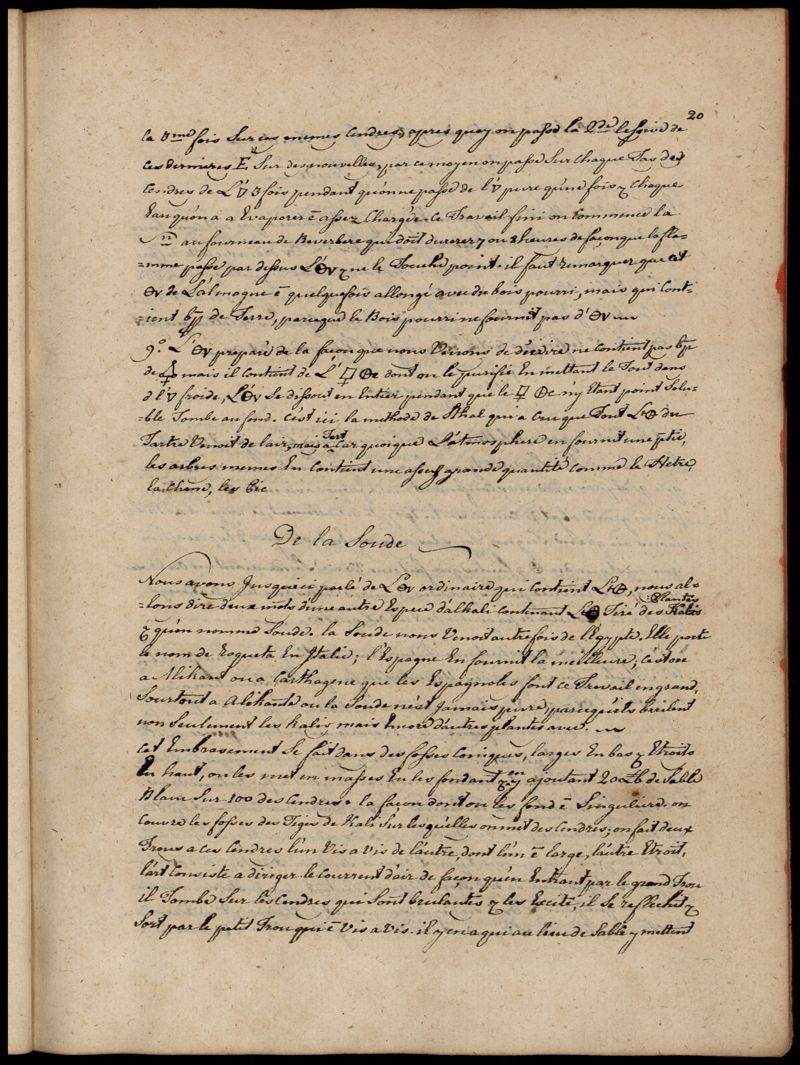 20
la 3me fois Sur ces memes Cendres, apres quoy on passe la 2de lessive de
ces dernieres Et Sur des nouvelles, par ce moyen on passe Sur chaque Tas de
Cendres de L'🜄 3 fois pendant qu'on ne passe de l'🜄 pure qu'une fois & chaque
Eau qu'on a a Evaporer ē assez Chargée. Ce Travail fini on Commence la
au fourneau de Reverbere qui doit durer 7 ou 8 heures de façon que la fla-
=mme passe par dessus L' & ne le Touche point. il faut remarquer que cet
de L'almagne ē quelquefois allongé avec du bois pourri, mais qui Conti-
:ient bp de Terre, parceque le Bois pourri ne fournit pas d'
9.° L' preparé de la façon que nous Venons de décrire ne contient pas bp
de mais il contient de L' dont on le purifie En mettant le Tout dans
d l'🜄 froide, L' Se dissout en Entier pendant que le n'y Etant point Solu-
ble Tombe au fond. C'est ici la methode de Sthal qui a cru que Tout L' du
Tartre Venoit de l'air, mais a Tort Car quoique L'atmosphere en fournit une ptie,
les arbres memes En Contient une assez grande quantité comme le Hetre,
le chene, les &c
De la Soude
Nous avons Jusqu'ici parlé de L' ordinaire qui contient L', nous al-
=lons dire deux mots d'une autre Espece d'alkali contenant L' Tiré des Plantes Kalis
& qu'on nomme Soude. la Soude nous Venoit autrefois de l'Egypte. Elle porte
le nom de Roqueta En Italie; l'Espagne En fournit la meilleure; c'est
a Alikant ou a Carthagene que les Espagnoles font ce Travail en grand,
Sourtout a Alikante ou la Soude n'est Jamais pure, parcequ'ils brulent
non Seulement les Kalis mais Encore d'autres plantes avec.
Cet Embrasement Se fait dans des fosses Coniques, larges En bas & Etroits
En haut, on les met en masses En les fondant & en y ajoutant 20 ℔ de Sable
Blanc Sur 100 des Cendres. la façon dont on les fond ē Singuliere. on
Couvre les fosses des Tiges de Kali Sur lesquelles on met des Cendres; on fait deux
Trous a ces Cendres l'un Vis a vis de l'autre, dont l'un ē large, l'autre Etroit,
l'art Consiste a diriger le Courrent d'air de façon qu'en Entrant par le grand Trou
il Tombe Sur les Cendres qui Sont brulantes & les Excite, il Se reflechit &
Sort par le petit Trou qui ē Vis a Vis. il y en a qui au lieu de Sable y mettent